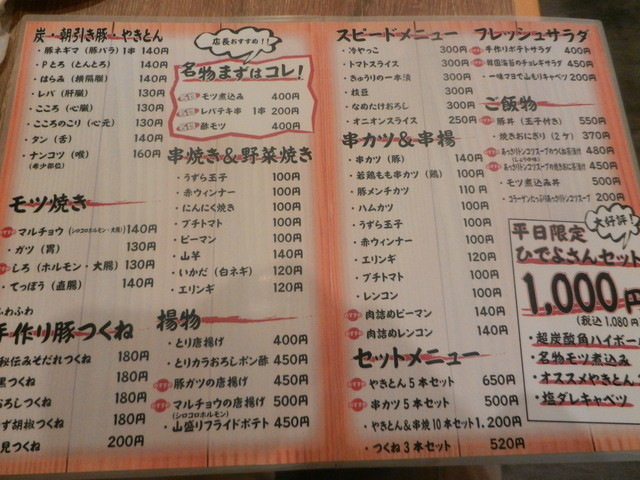 炭・朝引き豚・やきとん
・豚ネギマ（豚バラ）1串 140円
・Pとろ（とんとろ） 140円
・はらみ（横隔膜） 140円
・レバ（肝臓） 130円
・こころ（心臓） 130円
・こころのこり（心元） 130円
・タン（舌） 140円
・ナンコツ（喉） 160円
（希少部位）
モツ焼き
マルチョウ（シロコロホルモン・大腸）140円
・ガツ（胃） 130円
しろ（ホルモン・大腸）130円
・てっぽう（直腸） 140円
ふわふわ
手作り豚つくね
秘伝みそだれつくね 180円
つくね 180円
おろしつくね 180円
ず胡椒つくね 180円
見つくね 200円
店長おすすめ!!
名物まずはコレ！
モツ煮込み 400円
レバテキ串 1串 200円
酢モツ 400円
串焼き＆野菜焼き
・うずら玉子 100円
・赤ウィンナー 100円
・にんにく焼き 100円
・プチトマト 100円
・ピーマン 100円
・山芋 140円
・いかだ（白ネギ） 120円
・エリンギ 120円
揚物
・とり唐揚げ 400円
・とりカラおろしポン酢 450円
豚ガツの唐揚げ 450円
マルチョウの唐揚げ 500円
（シロコロホルモン）
・山盛りフライドポテト 450円
スピードメニュー
・冷やっこ 300円
・トマトスライス 300円
・きゅうりの一本漬 300円
・枝豆 300円
・なめたけおろし 300円
・オニオンスライス 250円
串カツ＆串揚
・串カツ（豚） 140円
・若鶏もも串カツ（鶏） 100円
・豚メンチカツ 110円
・ハムカツ 100円
・うずら玉子 100円
・赤ウィンナー 100円
・エリンギ 120円
・プチトマト 100円
・レンコン 100円
肉詰めピーマン 140円
肉詰めレンコン 140円
セットメニュー
やきとん5本セット 650円
串カツ5本セット 500円
・やきとん＆串焼10本セット 1,200円
・つくね3本セット 520円
フレッシュサラダ
手作りポテトサラダ 400円
韓国海苔のチョレギサラダ 450円
・一味マヨで山もりキャベツ 200円
ご飯物
豚丼（玉子付き） 550円
・焼きおにぎり（2ケ） 370円
あっさりトンコツスープのつくね茶漬け 480円
（しょうゆ味）
あっさりトンコツスープの焼きおに茶漬け 450円
・モツ煮込み丼 500円
・コラーゲンたっぷりあっさりトンコツスープ 200円
大好評！
平日限定
ひでよさんセット
1,000円
（税込1,080円
・超炭酸角ハイボール
・名物モツ煮込み
・オススメやきとん
・塩ダレキャベツ